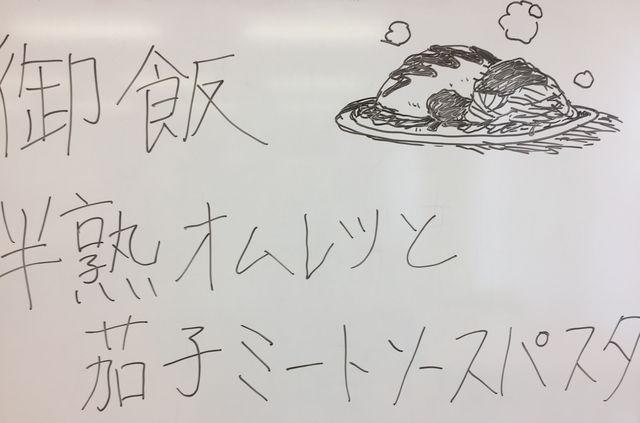 御飯
半熟オムレツと
茄子ミートソースパスタ